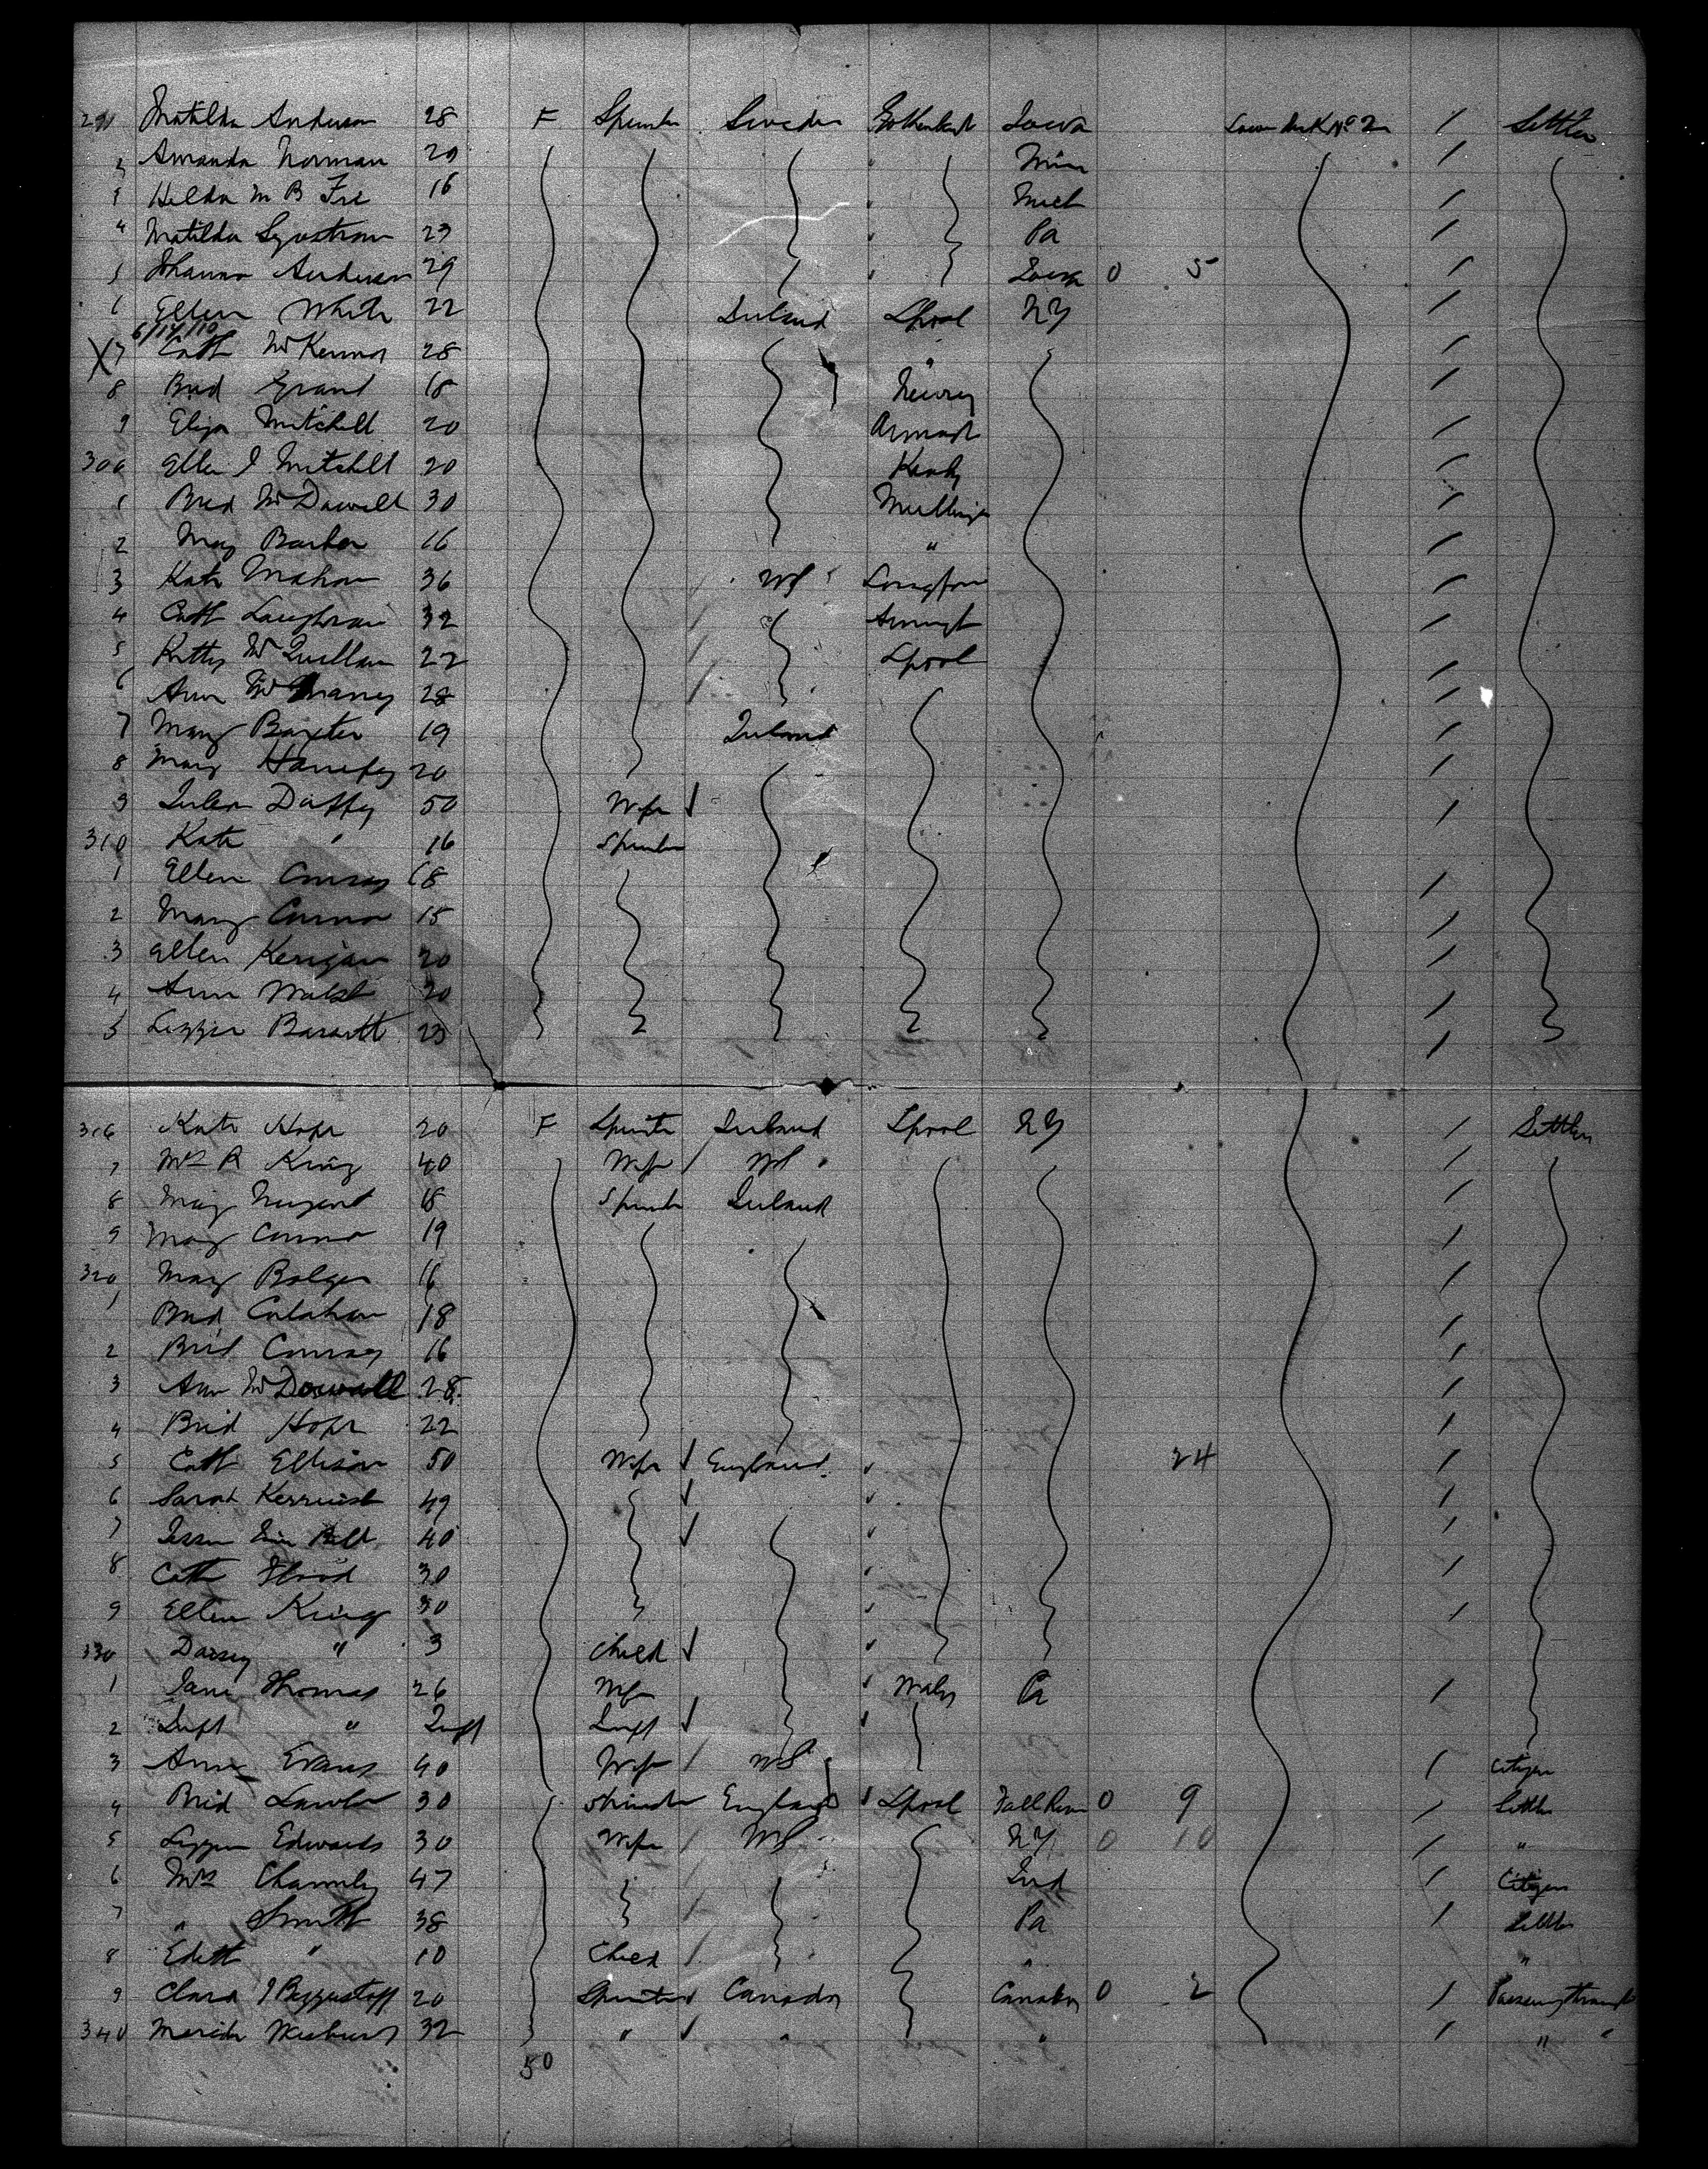 291 Matilda Anderson 28 F Spinster Sweden Gothenburg Iowa Lower deck No 2 / Settler
2 Amanda Norman 29 Minn /
3 Hilda M B Fre 16 Mich /
4 Matilda 23 Pa /
5 Johanna Anderson 29 Iowa 0 5 /
6 Ellen White 22 Ireland Lpool NY /
6/14/10
X 7 Cath McKenna 28 " /
8 Brid Grant 18 Newry /
9 Eliza Mitchell 20 Armagh /
300 Ellen J Mitchell 20 /
1 Brid McDowell 30 Mullingar /
2 Mary Barker 16 " /
3 Kate Mahon 36 US Longford /
4 Cath Laughran 32 /
5 Kitty McQuillan 22 Lpool /
6 Ann 28 /
7 Mary Baxter 19 Ireland /
8 Mary 20 /
9 Duffy 50 Wife /
310 Kate " 16 Spinster
1 Ellen Conroy 18 /
2 Mary Connor 15 /
3 Ellen Kerigan 20 /
4 Ann Walsh 20 /
5 Lizzie Barrett 23 /
316 Kate Hope 20 F Spinster Ireland Lpool NY / Settler
7 Mrs R King 40 Wife US /
8 Mary Nugent 18 Spinster Ireland /
9 Mary Connor 19 /
320 Mary Bolger 16 /
1 Brid Calahan 18 /
2 Brid Conroy 16 /
3 Ann McDowall 28 /
4 Brid Hope 22 /
5 Cath Ellison 50 Wife England 24 /
6 Sarah Kerruish 49 /
7 40 /
8 Cath Flood 30 /
9 Ellen King 30 /
330 Daisy " 3 Child
1 Jane Thomas 26 Wife Wales Pa /
2 Inft " Inft Inft
3 Ann Evans 40 Wife US / Citizen
4 Brid Lawler 30 Spinster England Lpool Fall River 0 9 / Settler
5 Lizzie Edwards 30 Wife US NY 0 10 / "
6 Mrs 47 Ind / Citizen
7 " Smith 38 Pa / Settler
8 Edith " 10 Child " "
9 Clara J Biggustaff 20 Spinster Canada Canada 0 2 /
340 32 " " " / " "
50